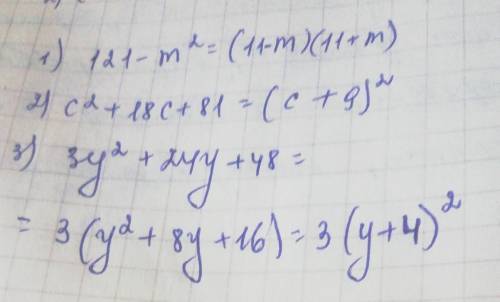 1) 121 - m² = (11-m)(11+m)
2) c² + 18c + 81 = (c + 9)²
3) 3y² + 24y + 48 =
= 3(y² + 8y + 16) = 3(y+4)²